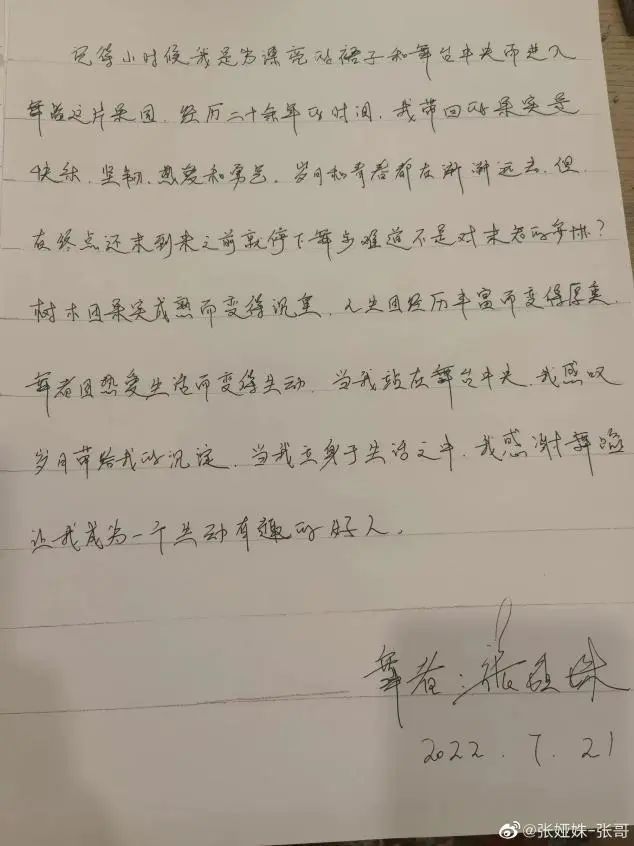 记得小时候我是为漂亮的裙子和舞台中央而进入
舞蹈这片果园，经历二十余年的时间，我带回的果实是
快乐、坚韧、热爱和勇气，岁月和青春都在渐渐远去，但
在终点还未到来之前就停下舞步难道不是对未知的
树木因果实成熟而变得沉重，人生因经历丰富而变得厚重，
舞者因热爱生活而变得生动，当我站在舞台中央，我感叹
岁月带给我的沉淀，当我立身于生活之中，我感谢舞蹈
让我成为一个生动有趣的好人。
舞者：张娅姝
2022.7.21
@张娅姝-张哥